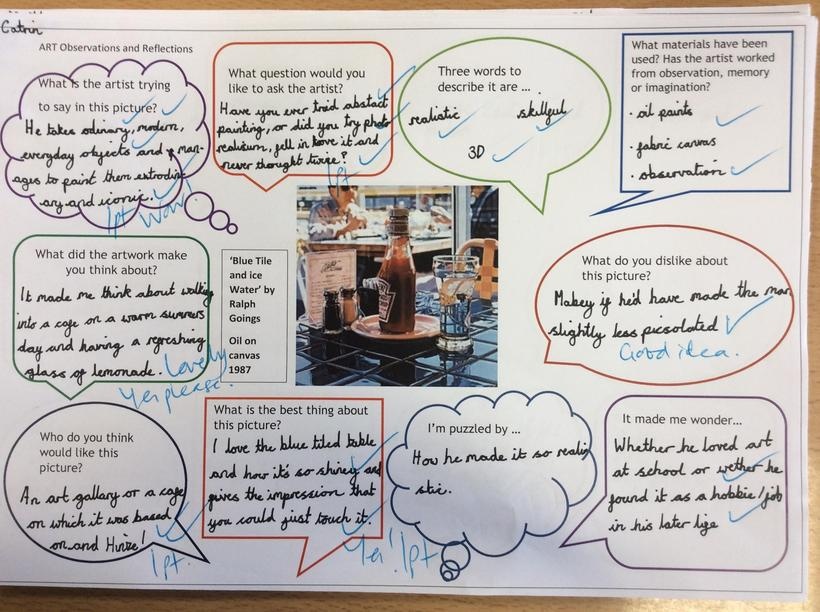 Catrin
ART Observations and Reflections
What is the artist trying
to say in this picture?
He takes odinary, modern,
everyday objects and man-
ages to paint them extrodin-
ary and iconic.
1pt Wow!
What question would you
like to ask the artist?
Have you ever traid abstact
painting, or did you try photo
realisum, fell in love it and
never thought twize?
1pt
Three words to
describe it are ...
realistic
skillful
3D
What materials have been
used? Has the artist worked
from observation, memory
or imagination?
· oil paints
· fabric canvas
· observation
What did the artwork make
you think about?
It made me think about walking
into a cafe on a warm summers
day and having a refreshing
glass of lemonade. Lovely
Yes please.
'Blue Tile
and ice
Water' by
Ralph
Goings
Oil on
canvas
1987
What do you dislike about
this picture?
Makey if he'd have made the man
slightly less picsolated
Good idea.
Who do you think
would like this
picture?
An art gallary or a cafe
on which it was based
on and Hinze!
1pt.
What is the best thing about
this picture?
I love the blue tiled table
and how it's so shiney and
gives the impression that
you could just touch it.
Yes! 1pt
I'm puzzled by ...
How he made it so realis
stic.
It made me wonder...
Whether he loved art
at school or wether he
found it as a hobbie/job
in his later life